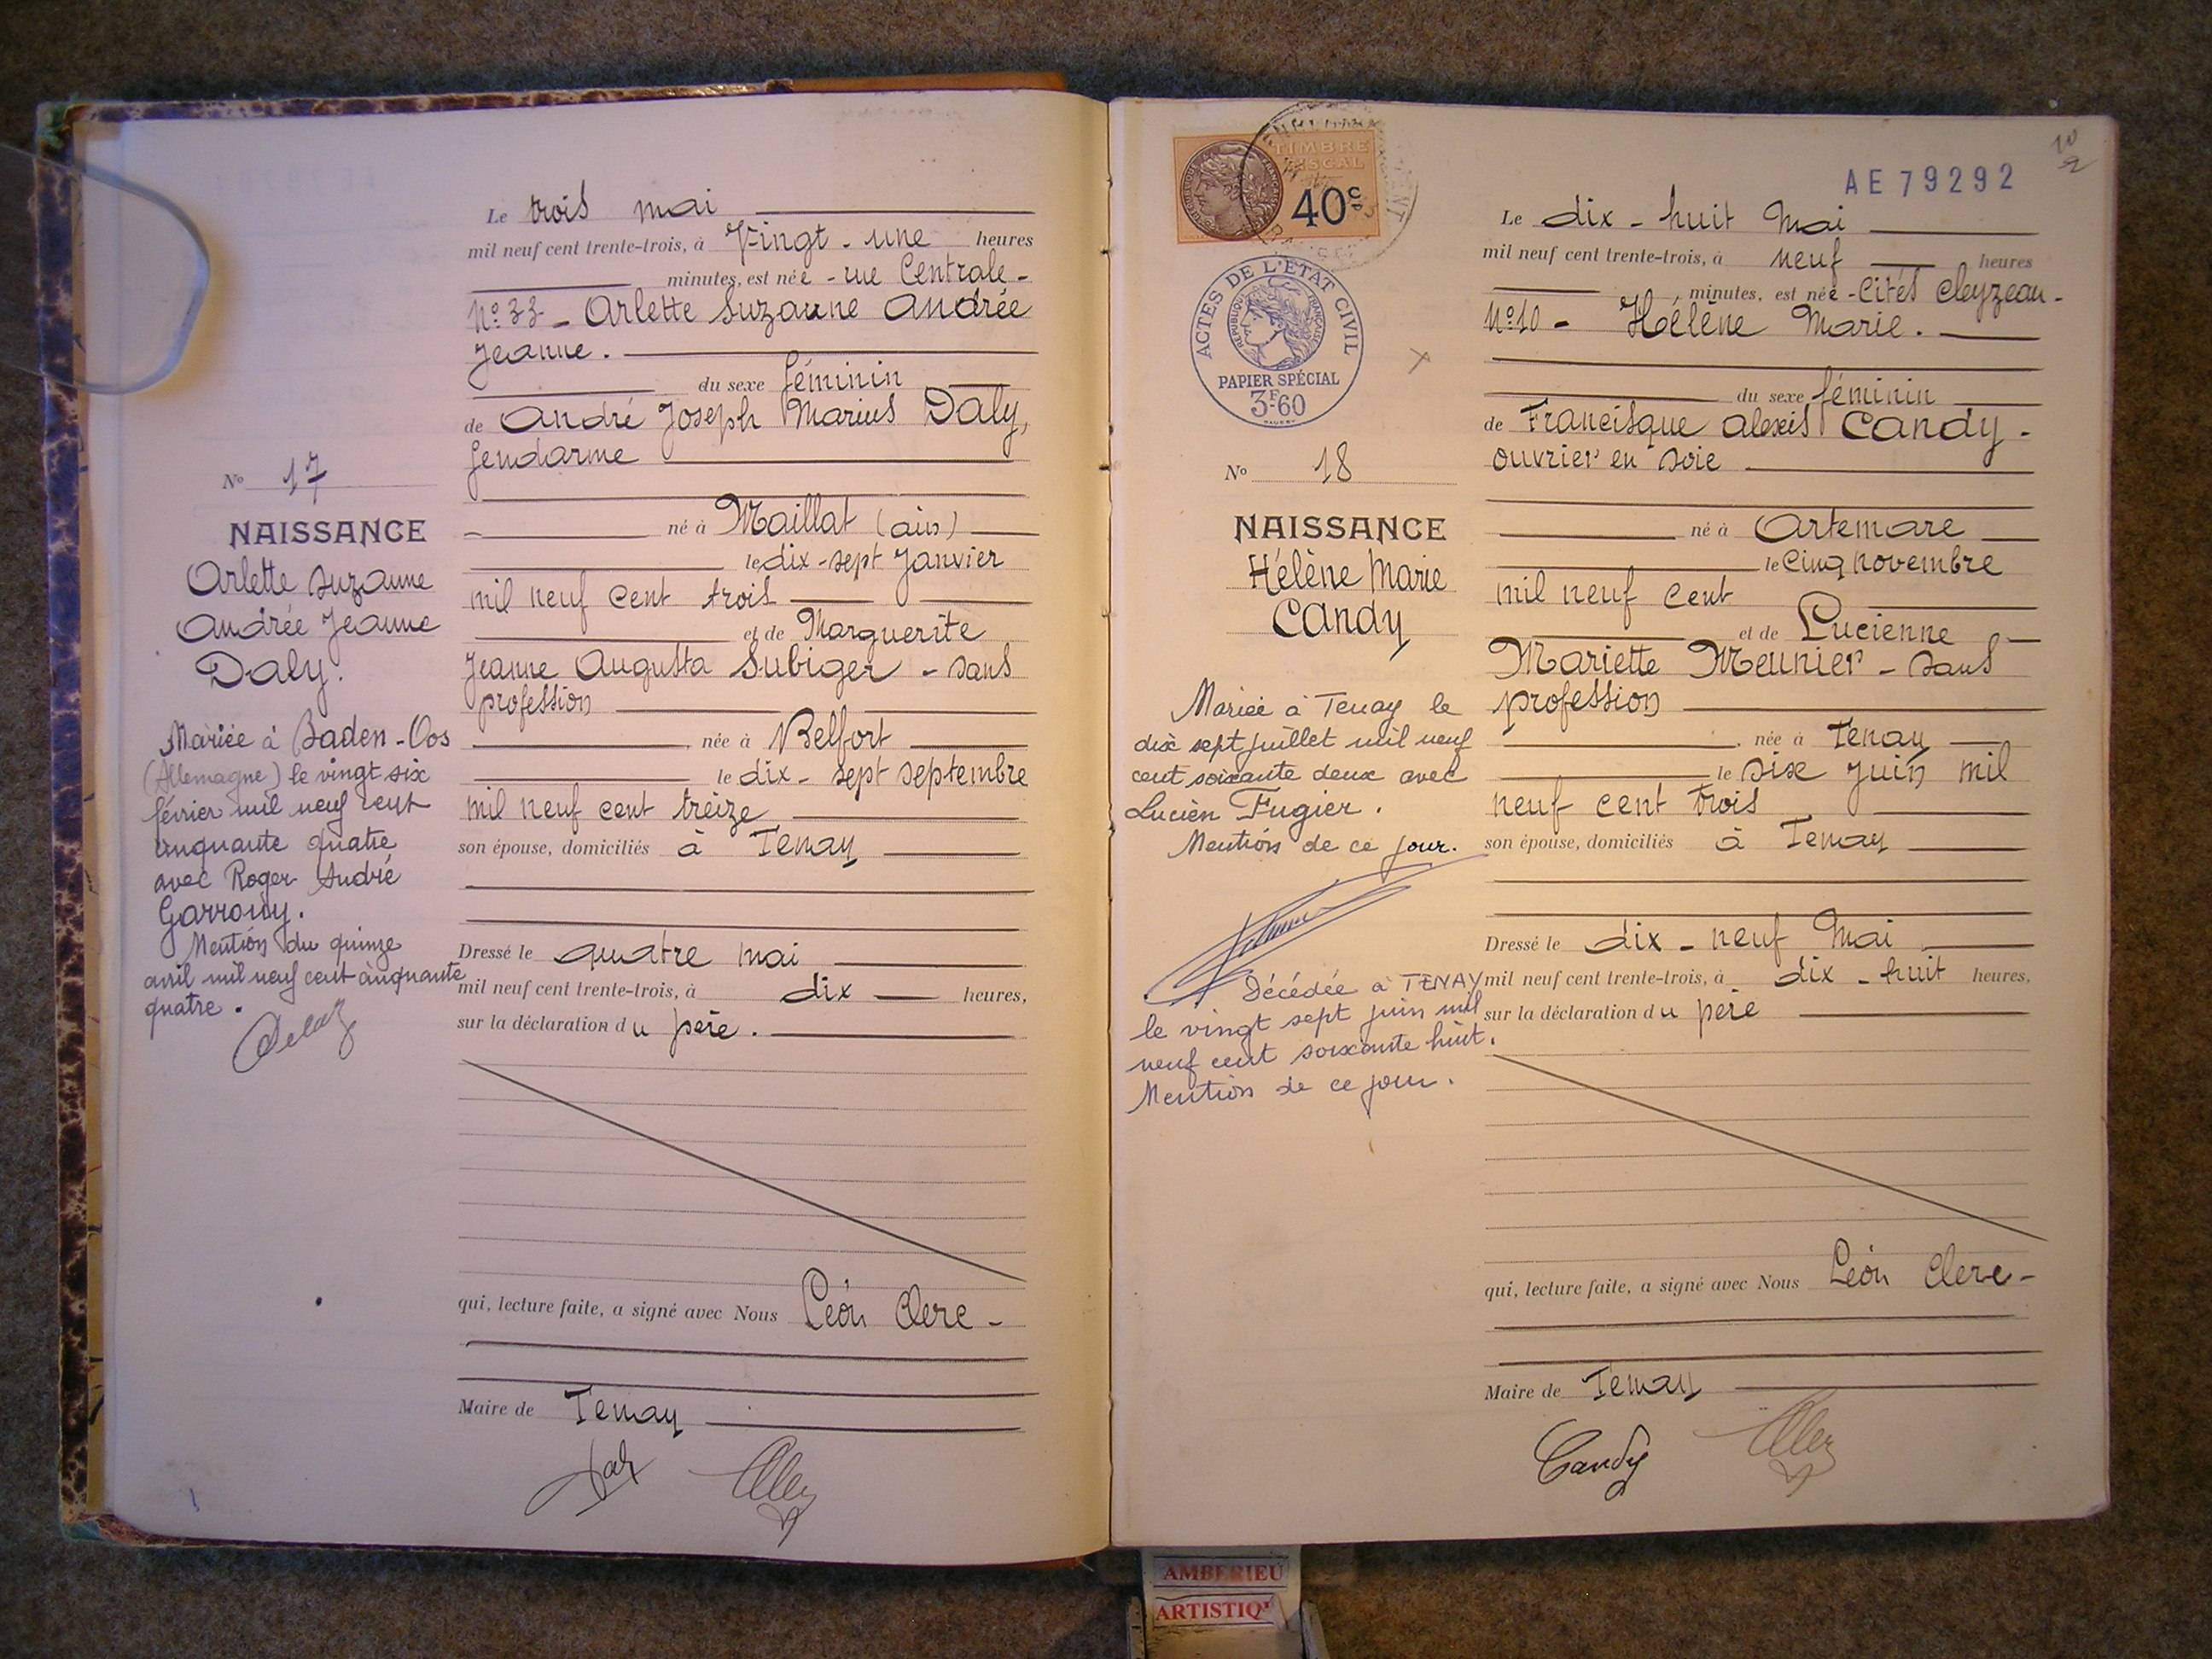 Le trois mai
mil neuf cent trente-trois, à Vingt - une heures
minutes, est née - rue Centrale -
N° 33 - Arlette Suzanne Andrée
Jeanne.
du sexe féminin
de André Joseph Marius Daly,
gendarme
né à Maillat (ain)
le dix-sept Janvier
mil neuf cent trois
et de Marguerite
Jeanne Augusta Subiger - sans
profession
née à Belfort
le dix - sept septembre
mil neuf cent treize
son épouse, domiciliés à Tenay
Dressé le quatre mai
mil neuf cent trente-trois, à dix heures,
sur la déclaration du père.
qui, lecture faite, a signé avec Nous Léon Clerc -
Maire de Tenay
N° 17
NAISSANCE
Arlette Suzanne
Andrée Jeanne
Daly.
Mariée à Baden-Oos
(Allemagne) le vingt six
février mil neuf cent
cinquante quatre
avec Roger André
Garrouy.
Mention du quinze
avril mil neuf cent cinquante
quatre.
TIMBRE
FISCAL
40c
ACTES DE L'ÉTAT CIVIL
RÉPUBLIQUE FRANÇAISE
PAPIER SPÉCIAL
3F60
N° 18
NAISSANCE
Hélène Marie
Candy
Mariée à Tenay le
dix sept juillet mil neuf
cent soixante deux avec
Lucien Fugier.
Mention de ce jour.
Décédée à TENAY
le vingt sept juin mil
neuf cent soixante huit.
Mention de ce jour.
AE79292
Le dix - huit Mai
mil neuf cent trente-trois, à neuf heures
minutes, est née - Cités Cleyzeau -
N° 10 - Hélène Marie.
du sexe féminin
de Francisque Alexis Candy -
ouvrier en soie
né à Artemare
le Cinq novembre
mil neuf cent
et de Lucienne
Mariette Meunier - sans
profession
née à Tenay
le six Juin mil
neuf cent trois
son épouse, domiciliés à Tenay
Dressé le dix - neuf Mai
mil neuf cent trente-trois, à dix - huit heures,
sur la déclaration du père
qui, lecture faite, a signé avec Nous Léon Clerc -
Maire de Tenay
Candy
AMBERIEU
ARTISTIQ